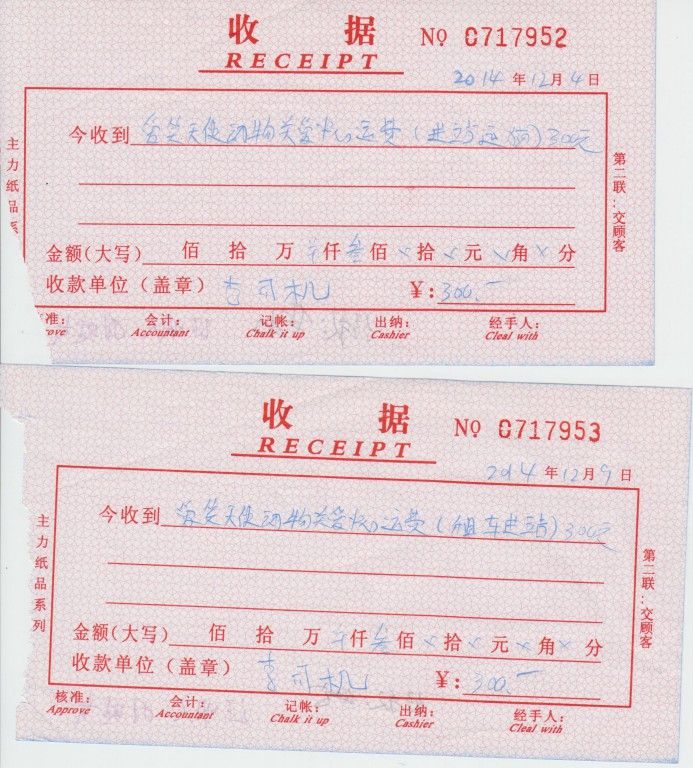 收 据 № 0717952
RECEIPT
2014 年 12 月 4 日
今收到 微笑天使动物关爱中心运费(进站运狗)300元
主力纸品系
第二联：交顾客
金额(大写) 佰 拾 万 仟 叁 佰 × 拾 × 元 × 角 × 分
收款单位(盖章) 李司机 ¥: 300.—
准： 会计： 记帐： 出纳： 经手人：
rove Accountant Chalk it up Cashier Cleal with
收 据 № 0717953
RECEIPT
2014 年 12 月 9 日
今收到 微笑天使动物关爱中心运费(租车进站)300元
主力纸品系列
第二联：交顾客
金额(大写) 佰 拾 万 仟 叁 佰 × 拾 × 元 × 角 × 分
收款单位(盖章) 李司机 ¥: 300.—
核准： 会计： 记帐： 出纳： 经手人：
Approve Accountant Chalk it up Cashier Cleal with